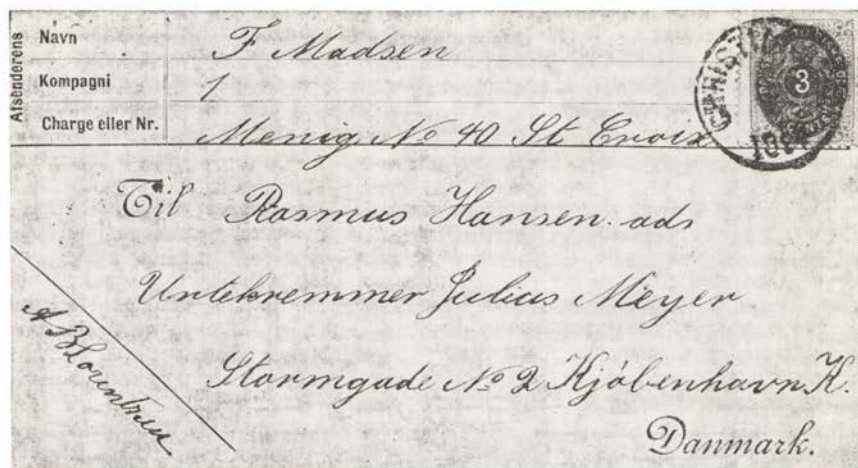 Afsenderens
Navn F Madsen
Kompagni 1
Charge eller Nr. Menig No 40 St Croix
3
Til Rasmus Hansen. ads
Urtekremmer Julius Meyer
Stormgade No 2 Kjøbenhavn K.
Danmark.